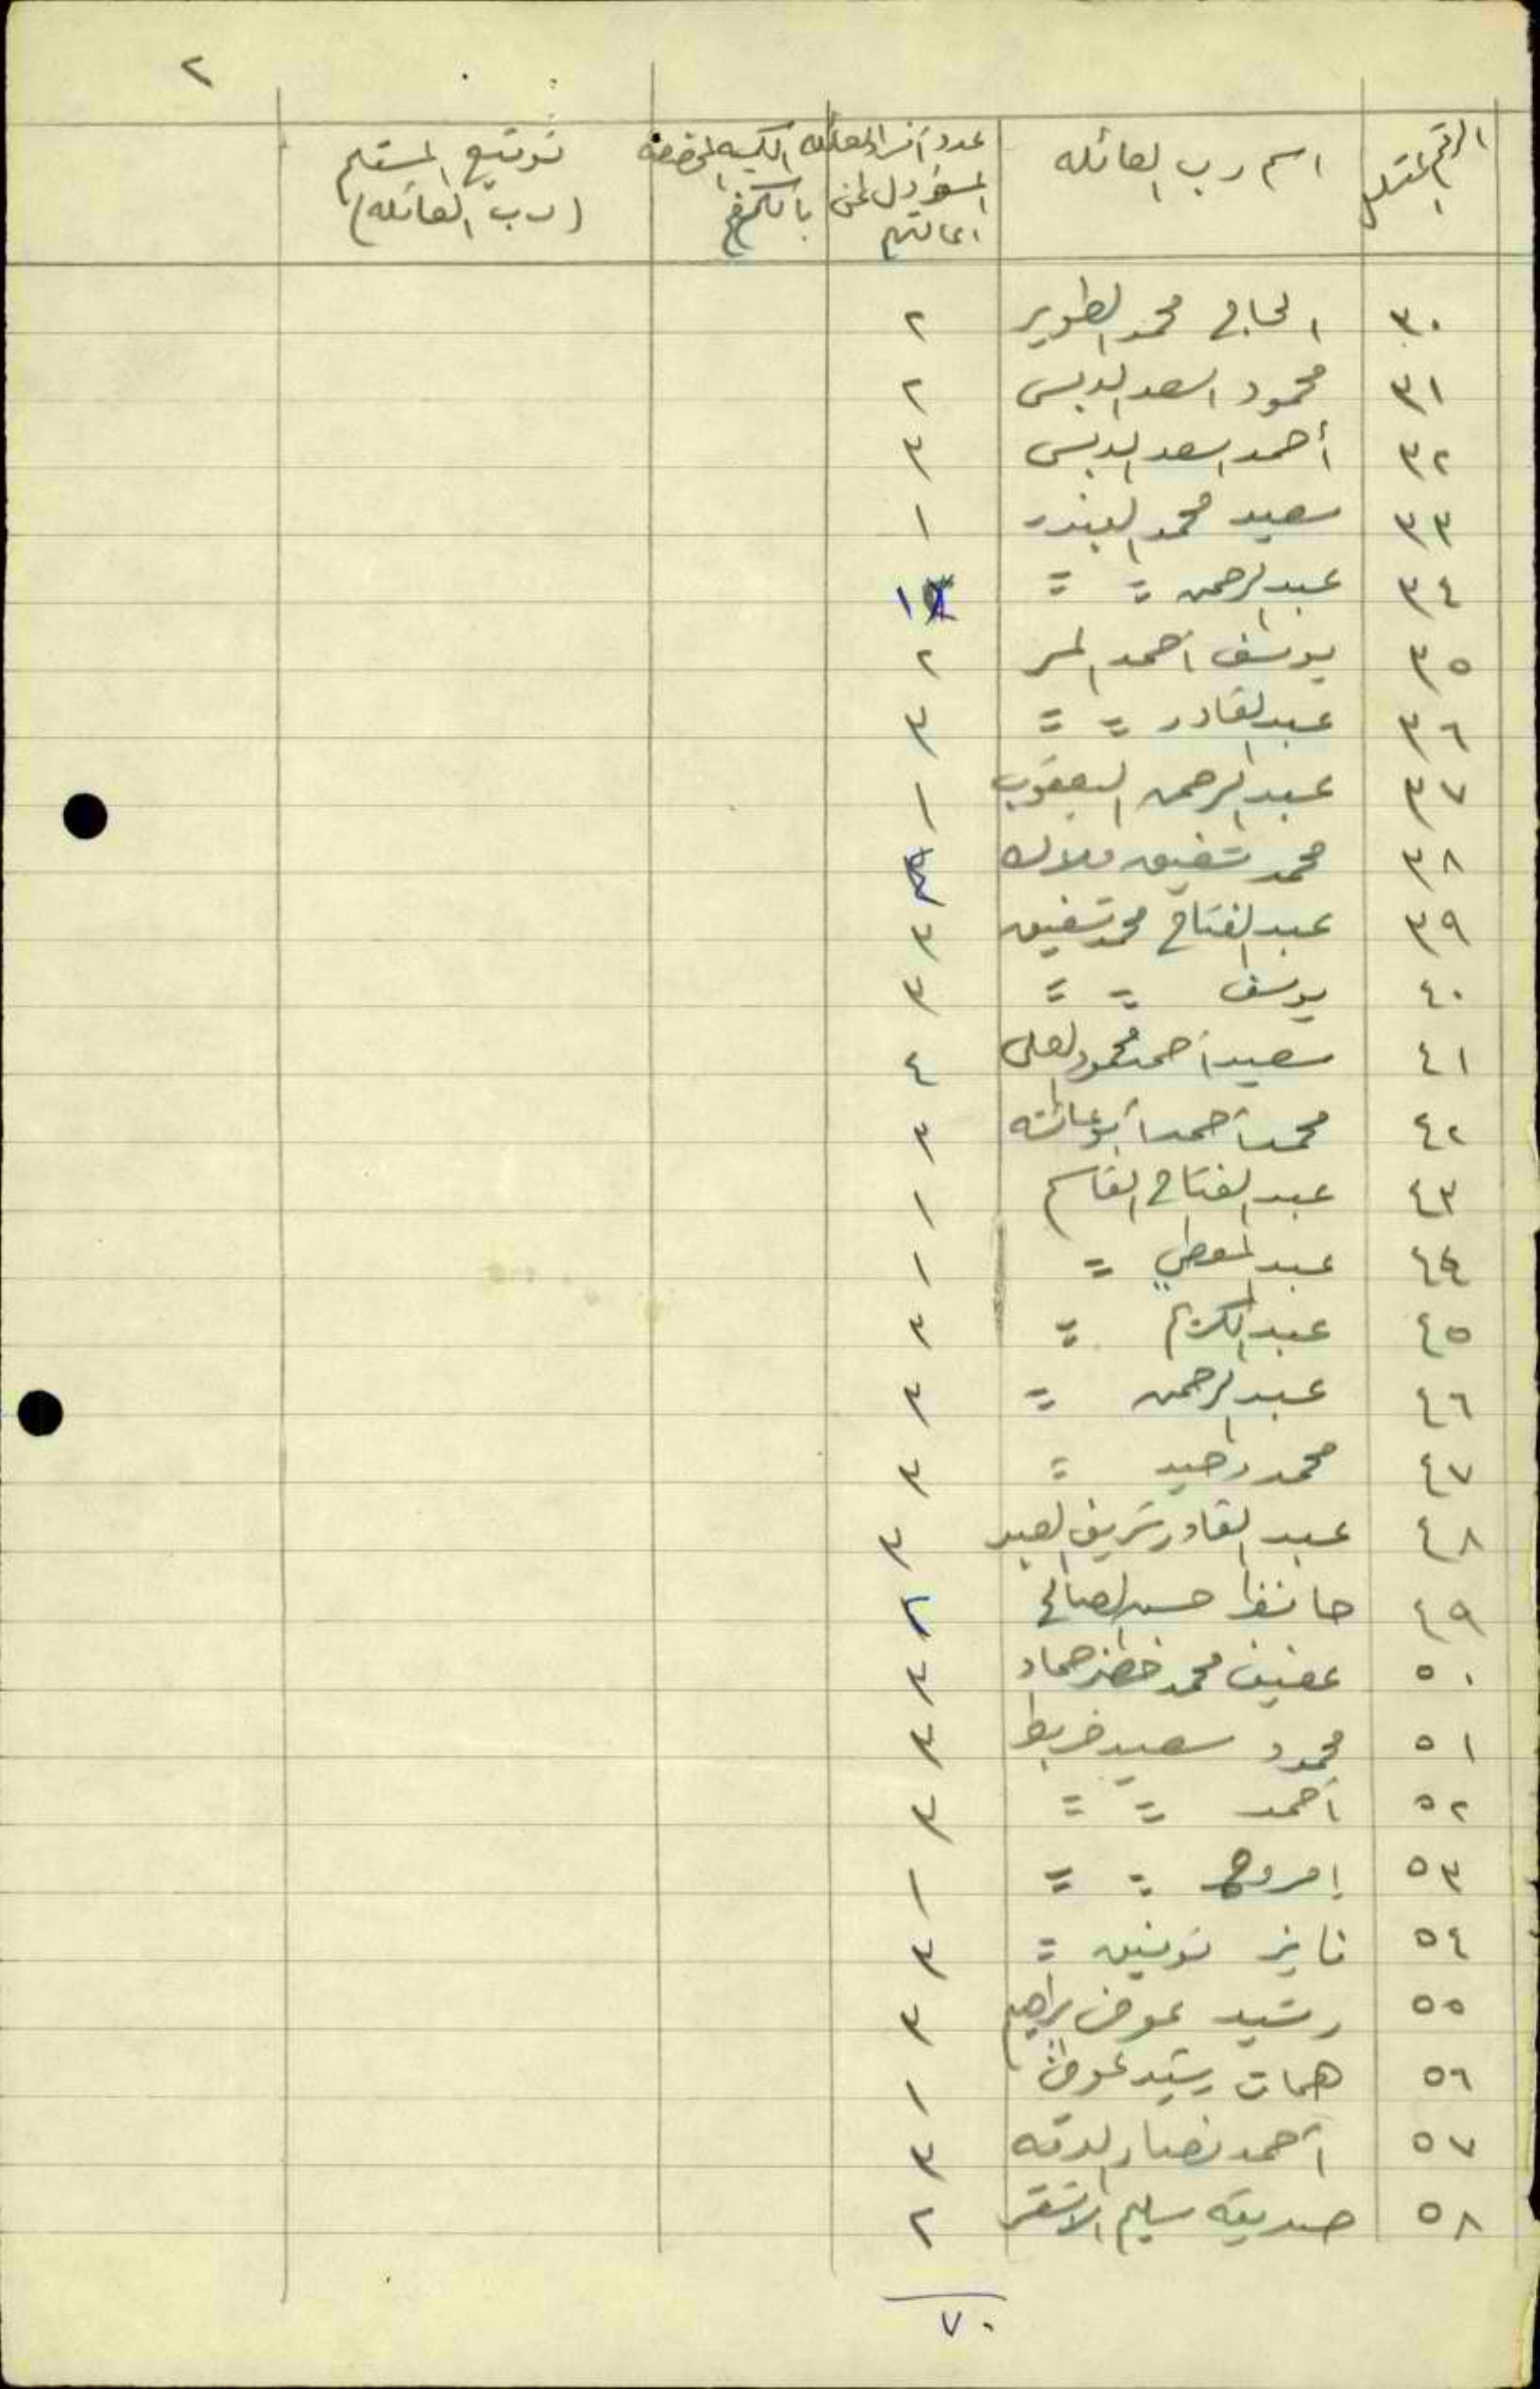 ٢
الرقم المتسلسل | اسم رب العائله | عدد أفراد العائله المسؤول عن اعالتهم | الكميه المخصصه بالكغم | توقيع المستلم (رب العائله)
٣٠ الحاج محمد الطوير ٢
٣١ محمود اسعد الدبس ٢
٣٢ أحمد اسعد الدبس ٣
٣٣ سعيد محمد البندر ١
٣٤ عبد الرحمن = = ١
٣٥ يوسف أحمد المر ٢
٣٦ عبد القادر = = ٣
٣٧ عبد الرحمن اليعقوب ١
٣٨ محمد شفيق ملاك
٣٩ عبد الفتاح محمد شفيق ٣
٤٠ يوسف = = ٣
٤١ سعيد أحمد محمود العلي ٤
٤٢ محمد أحمد أبو عائشه ٣
٤٣ عبد الفتاح القاسم ١
٤٤ عبد المعطي = ١
٤٥ عبد الكريم = ٣
٤٦ عبد الرحمن = ٣
٤٧ محمد وحيد = ٣
٤٨ عبد القادر شريف العبد ٣
٤٩ حافظ حسن الصالح ٢
٥٠ عفيف محمد خضر حماد ٣
٥١ محمود سعيد خربط ٣
٥٢ أحمد = = ٣
٥٣ = = ١
٥٤ فايز توفيق = ٣
٥٥ رشيد عوض ابراهيم ٣
٥٦ رشيد عوض ١
٥٧ أحمد نصار الدقه ٣
٥٨ صديقه سليم الاشقر ٢
٧٠